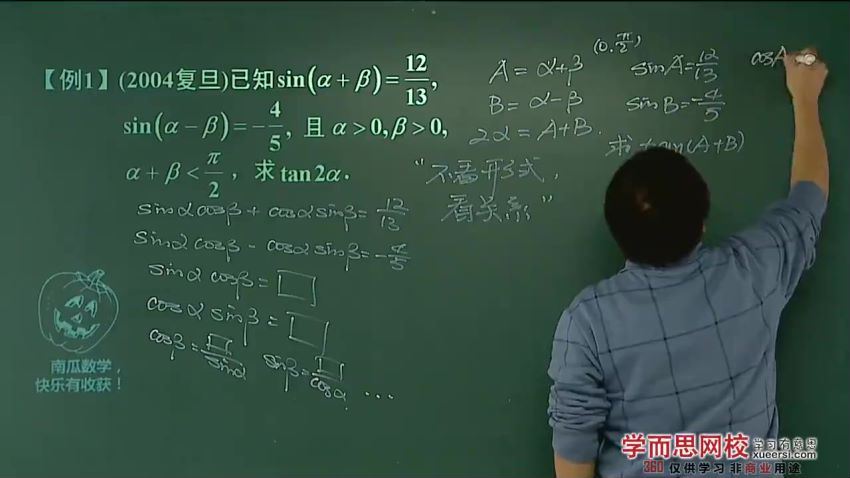 【例1】(2004复旦)已知sin(α+β)=12/13,
sin(α−β)=−4/5, 且 α>0,β>0,
α+β<π/2, 求tan2α.
sinαcosβ+cosαsinβ=12/13
sinαcosβ−cosαsinβ=−4/5
sinαcosβ=□
cosαsinβ=□
cosβ=□/sinα sinβ=□/cosα ...
A=α+β (0,π/2)
B=α−β
2α=A+B.
"不看形式,
看关系"
sinA=12/13
sinB=−4/5
求 tan(A+B)
cosA
南瓜数学,
快乐有收获!
学而思网校 学习有意思
xueersi.com
360 仅供学习 非商业用途